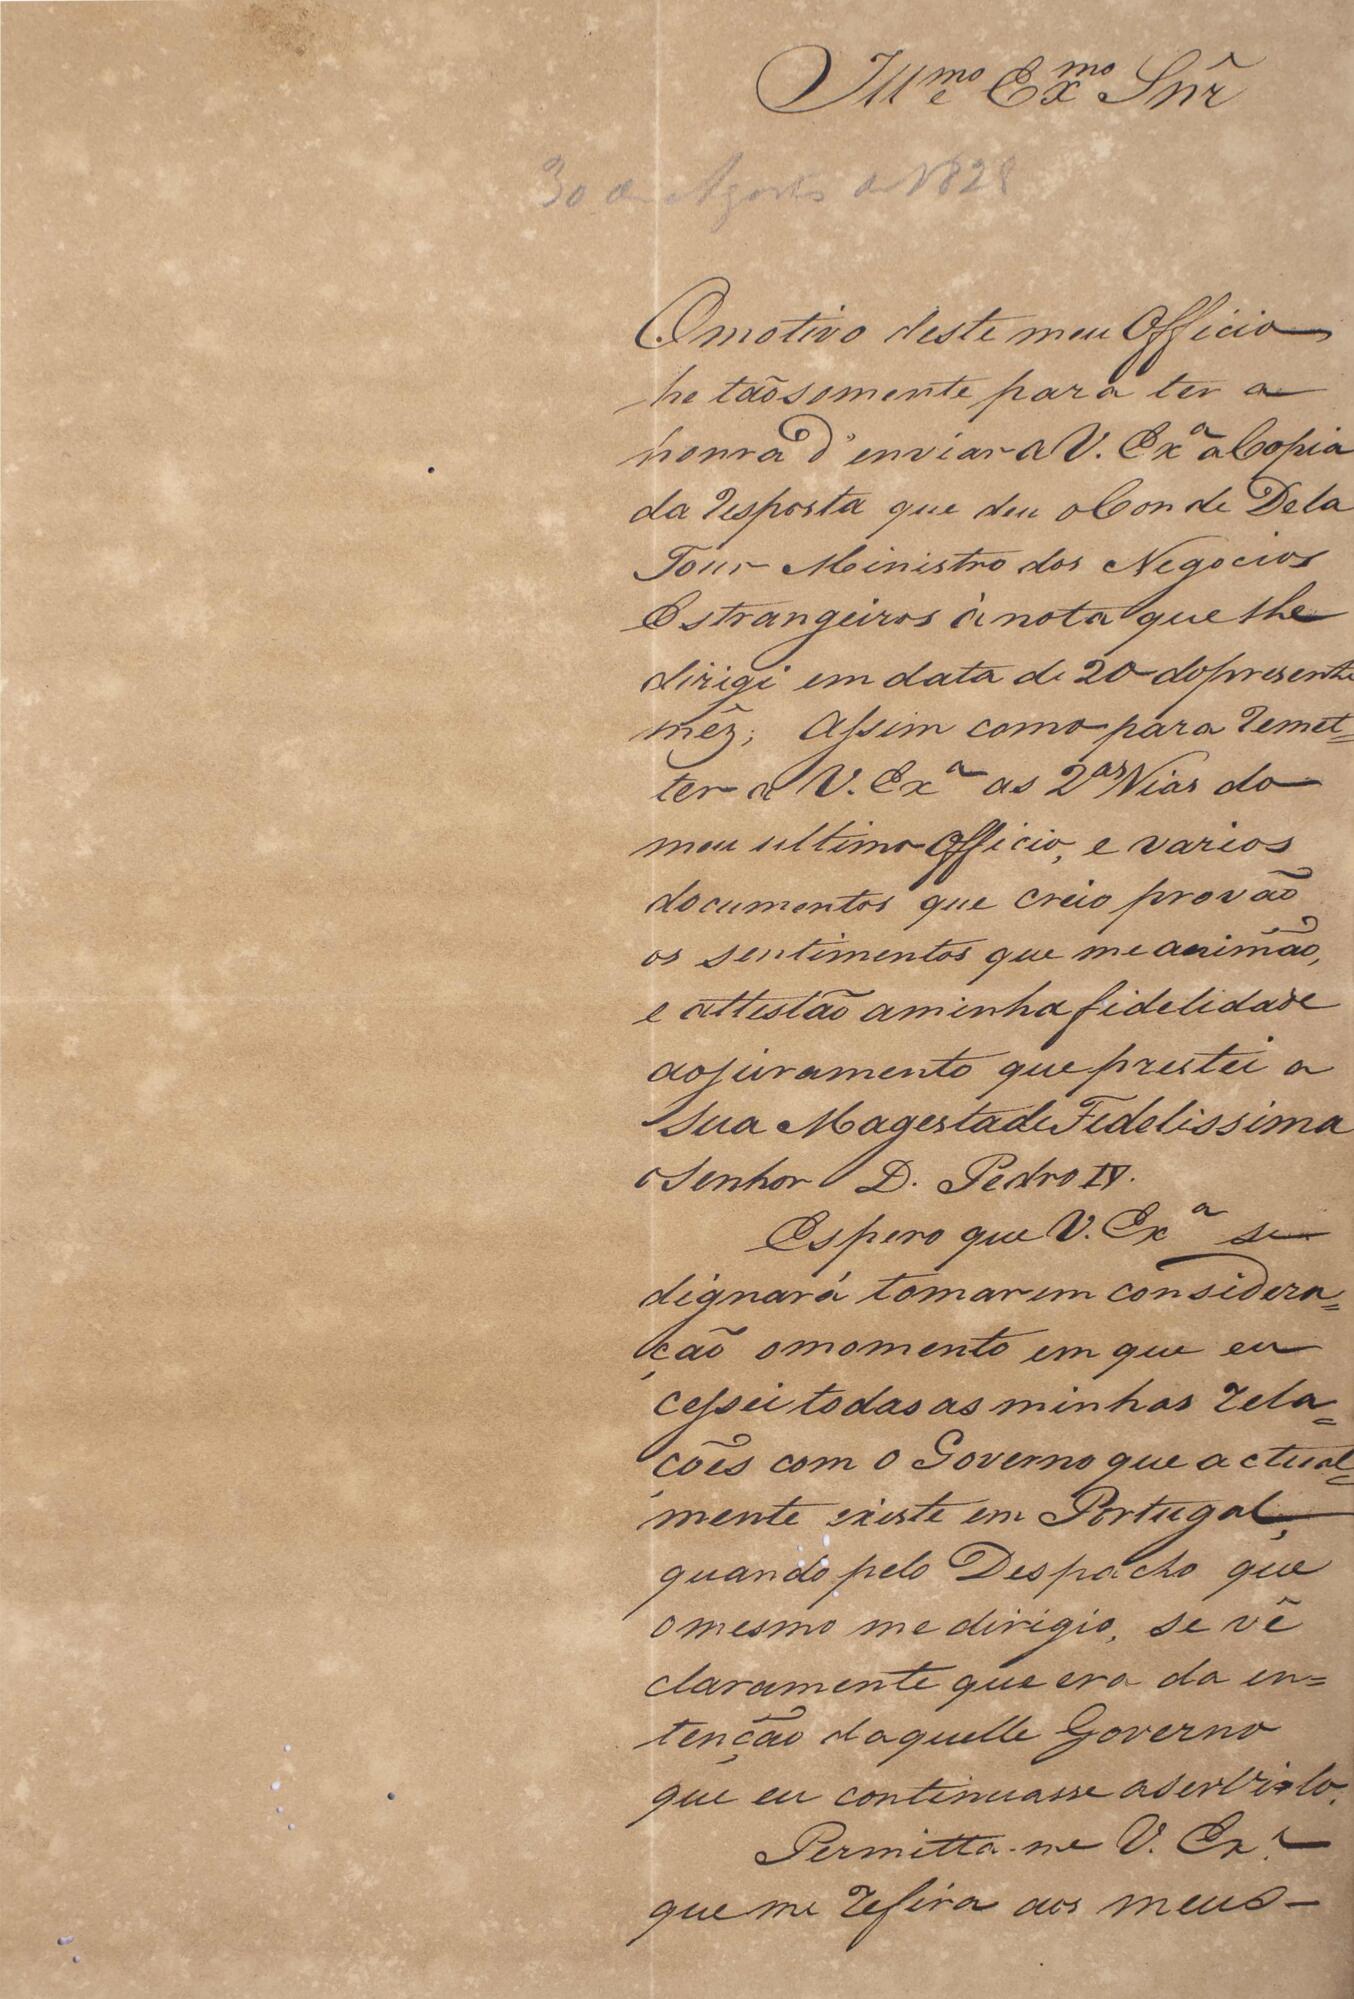 Ill^mo e Ex^mo Snr̂
30 de Agosto de 1828
O motivo deste meu Officio
he tãosomente para ter a
honra d'enviar a V. Ex^a a Copia
da resposta que deu o Conde Dela
Tour Ministro dos Negocios
Estrangeiros à nota que lhe
dirigi em data de 20 do presente
mêz; Assim como para remet=
ter a V. Ex^a as 2^as Vias do
meu ultimo Officio, e varios
documentos que creio provão
os sentimentos que me animão,
e attestão a minha fidelidade
ao juramento que prestei a
Sua Magestade Fidelissima
o Senhor D. Pedro IV.
Espero que V. Ex^a se
dignará tomar em considera=
ção o momento em que eu
cessei todas as minhas rela=
ções com o Governo que actual=
mente existe em Portugal,
quando pelo Despacho que
o mesmo me dirigio, se vê
claramente que era da in=
tenção daquelle Governo
que eu continuasse a servilo.
Permitta-me V. Ex^a
que me refira aos meus